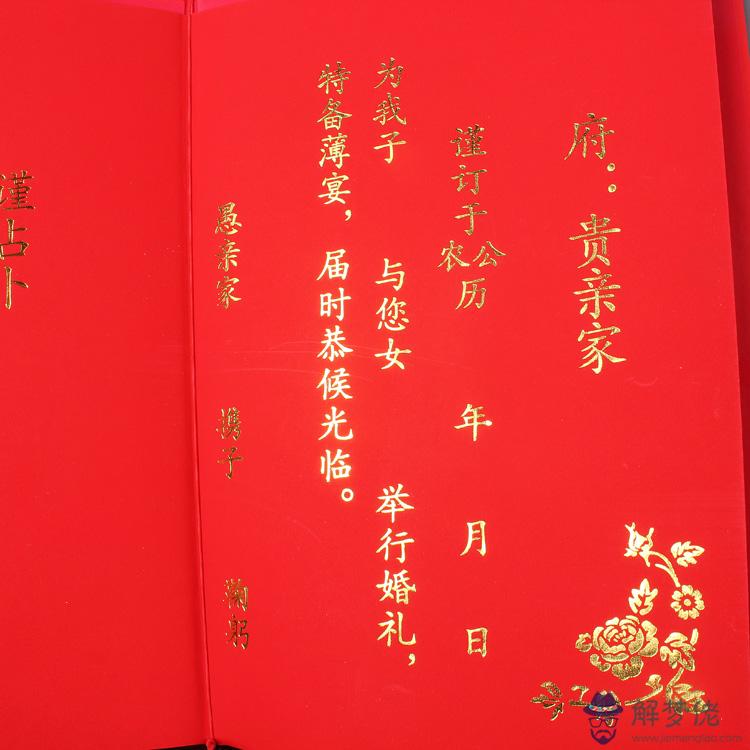 府：贵亲家
谨订于农公历 年 月 日
为我子 与您女 举行婚礼，
特备薄宴，届时恭候光临。
愚亲家 携子 鞠躬
谨占卜
解梦佬
www.jiemenglao.com